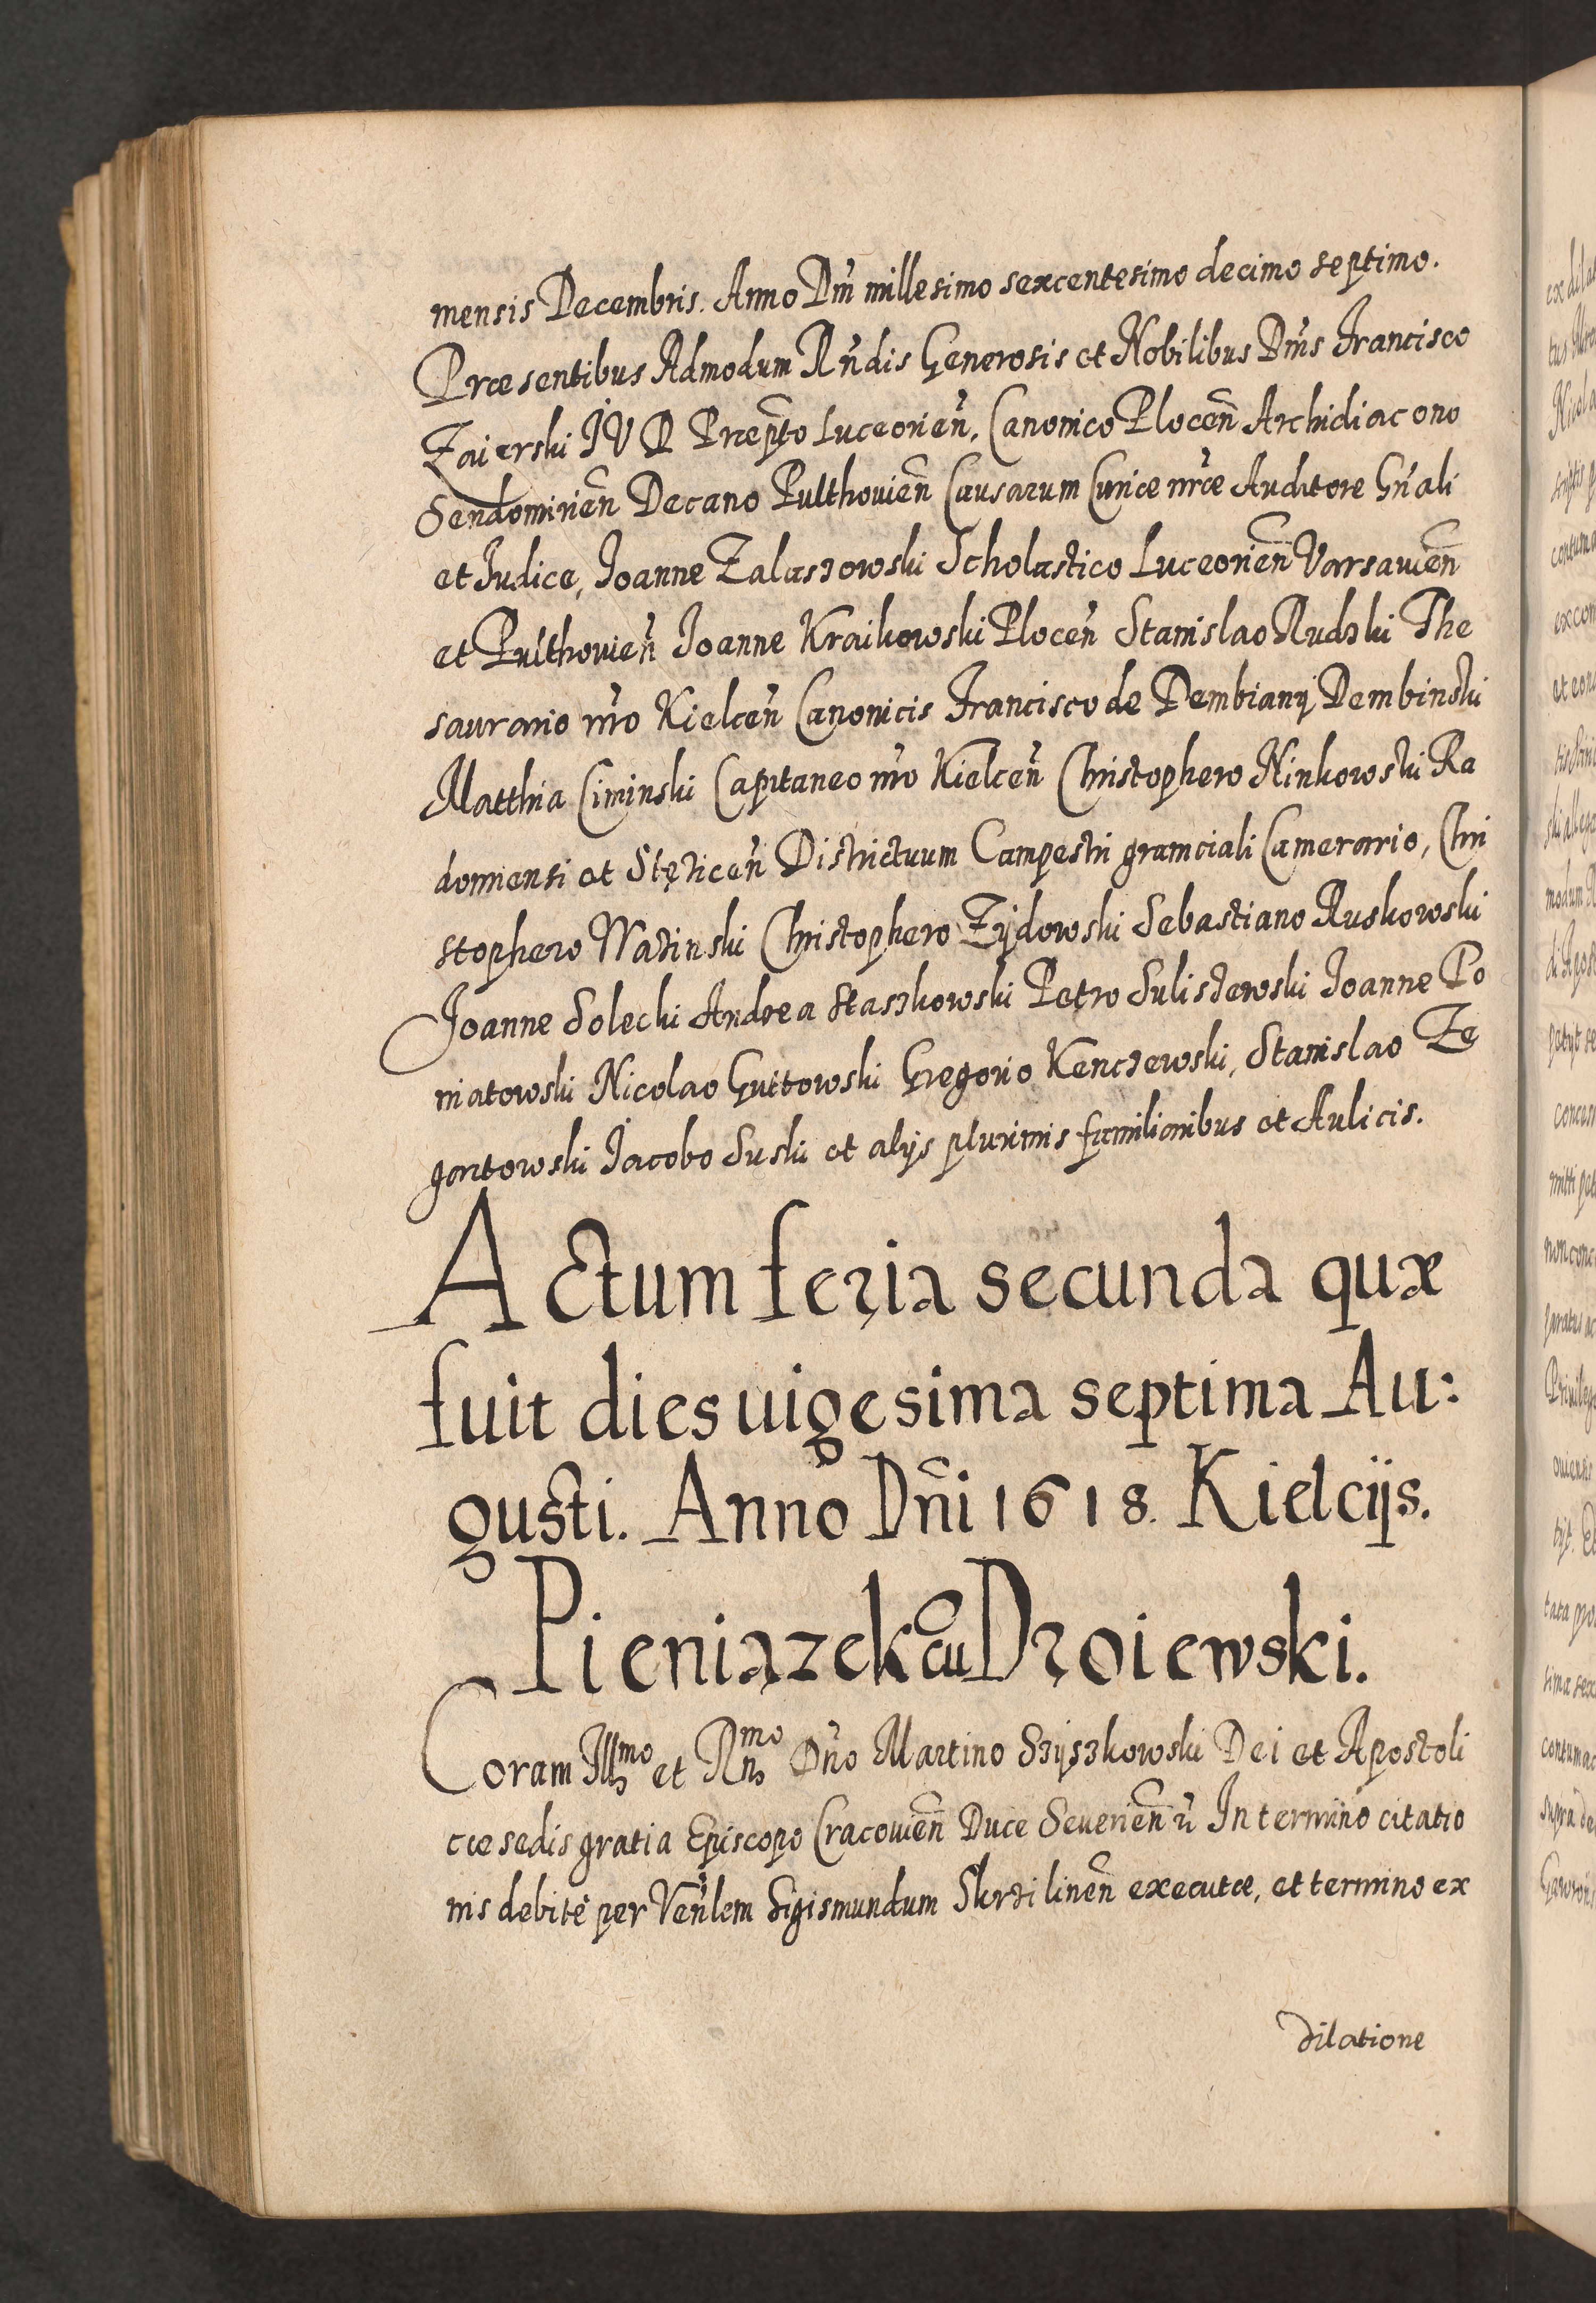 mensis Decembris. Anno Dni millesimo sexcentesimo decimo septimo.
Præsentibus Admodum Rndis Generosis et Nobilibus Dnis Francisco
Zaierski JVD Præpto Luceorien, Canonico Plocen Archidiacono
Sendomirien Decano Pulthouien Causarum Curiæ nræ Auditore Gnali
et Iudice, Joanne Zalaszowski Scholastico Luceorien Varsauien
et Pulthouien Joanne Kraikowski Plocen Stanislao Rudzki The
saurario nro Kielcen Canonicis Francisco de Dembiany Dembinski
Matthia Ciminski Capitaneo nro Kielcen Christophero Ninkowski Ra
domiensi et Stęzicen Districtuum Campestri granciali Camerario, Chri
stophero Wazinski Christophero Zydowski Sebastiano Ruskowski
Joanne Solecki Andrea Staszkowski Petro Sulizewski Joanne Po
niatowski Nicolao Guttowski Gregorio Kenczewski, Stanislao Ze
gartowski Jacobo Suski et alijs plurimis familiaribus et Aulicis.
Actum feria secunda quæ
fuit dies uigesima septima Au:
gusti. Anno Dñi 1618. Kielcijs.
Pieniązek cu Droiewski.
Coram Illmo et Rmo Dno Martino Szyszkowski Dei et Apostoli
cæ sedis gratia Episcopo Cracouien Duce Seuerien In termino citatio
nis debite per Venlem Sigismundum executæ, et termino ex
dilatione